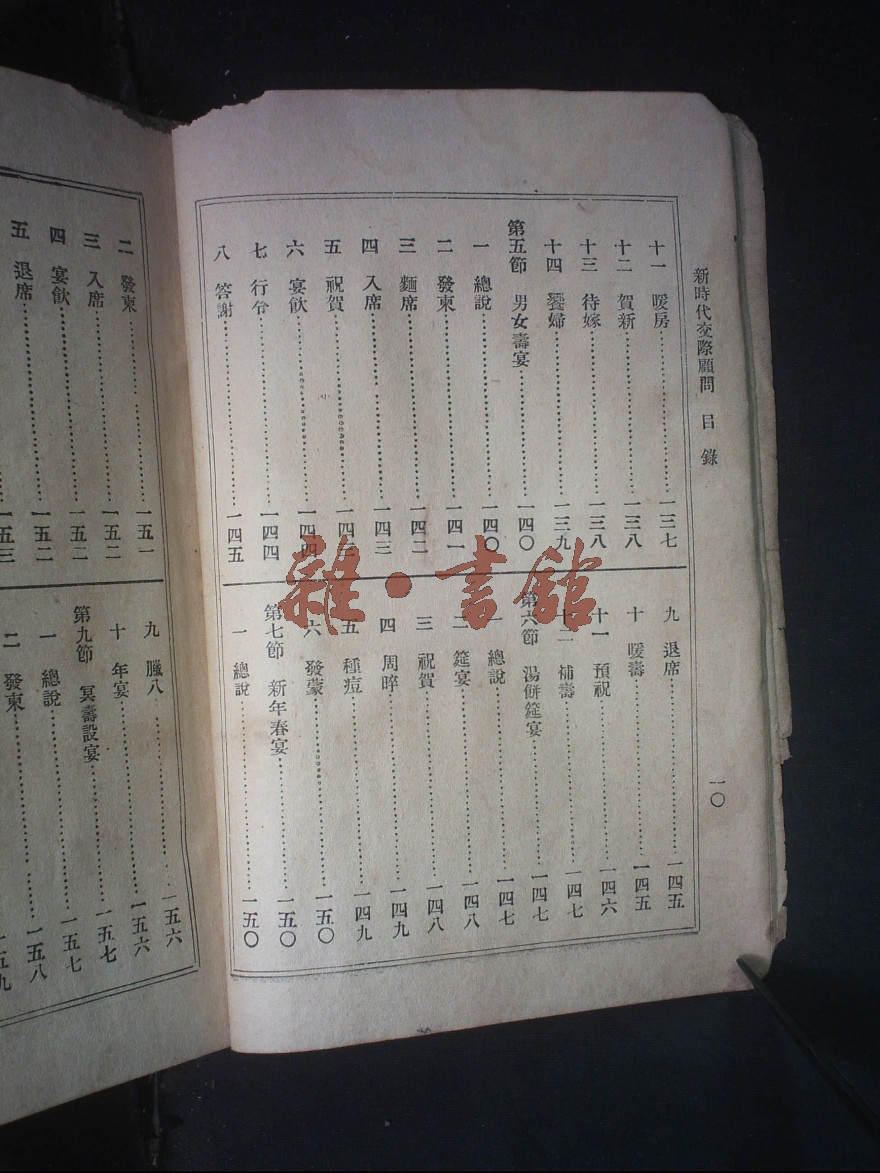 新時代交際顧問 目錄
一〇
十一 暖房 一三七
十二 賀新 一三八
十三 待嫁 一三八
十四 饗婦 一三九
第五節 男女壽宴 一四〇
一 總說 一四〇
二 發柬 一四一
三 麵席 一四二
四 入席 一四三
五 祝賀 一四三
六 宴飲 一四四
七 行令 一四四
八 答謝 一四五
九 退席 一四五
十 暖壽 一四五
十一 預祝 一四六
十二 補壽 一四七
第六節 湯餅筵宴 一四七
一 總說 一四七
二 筵宴 一四八
三 祝賀 一四八
四 周晬 一四九
五 種痘 一四九
六 發蒙 一五〇
第七節 新年春宴 一五〇
一 總說 一五〇
二 發柬 一五一
三 入席 一五二
四 宴飲 一五二
五 退席 一五二
一五三
九 臘八 一五六
十 年宴 一五六
第九節 冥壽設宴 一五七
一 總說 一五七
二 發柬 一五八
一五九
雜·書館